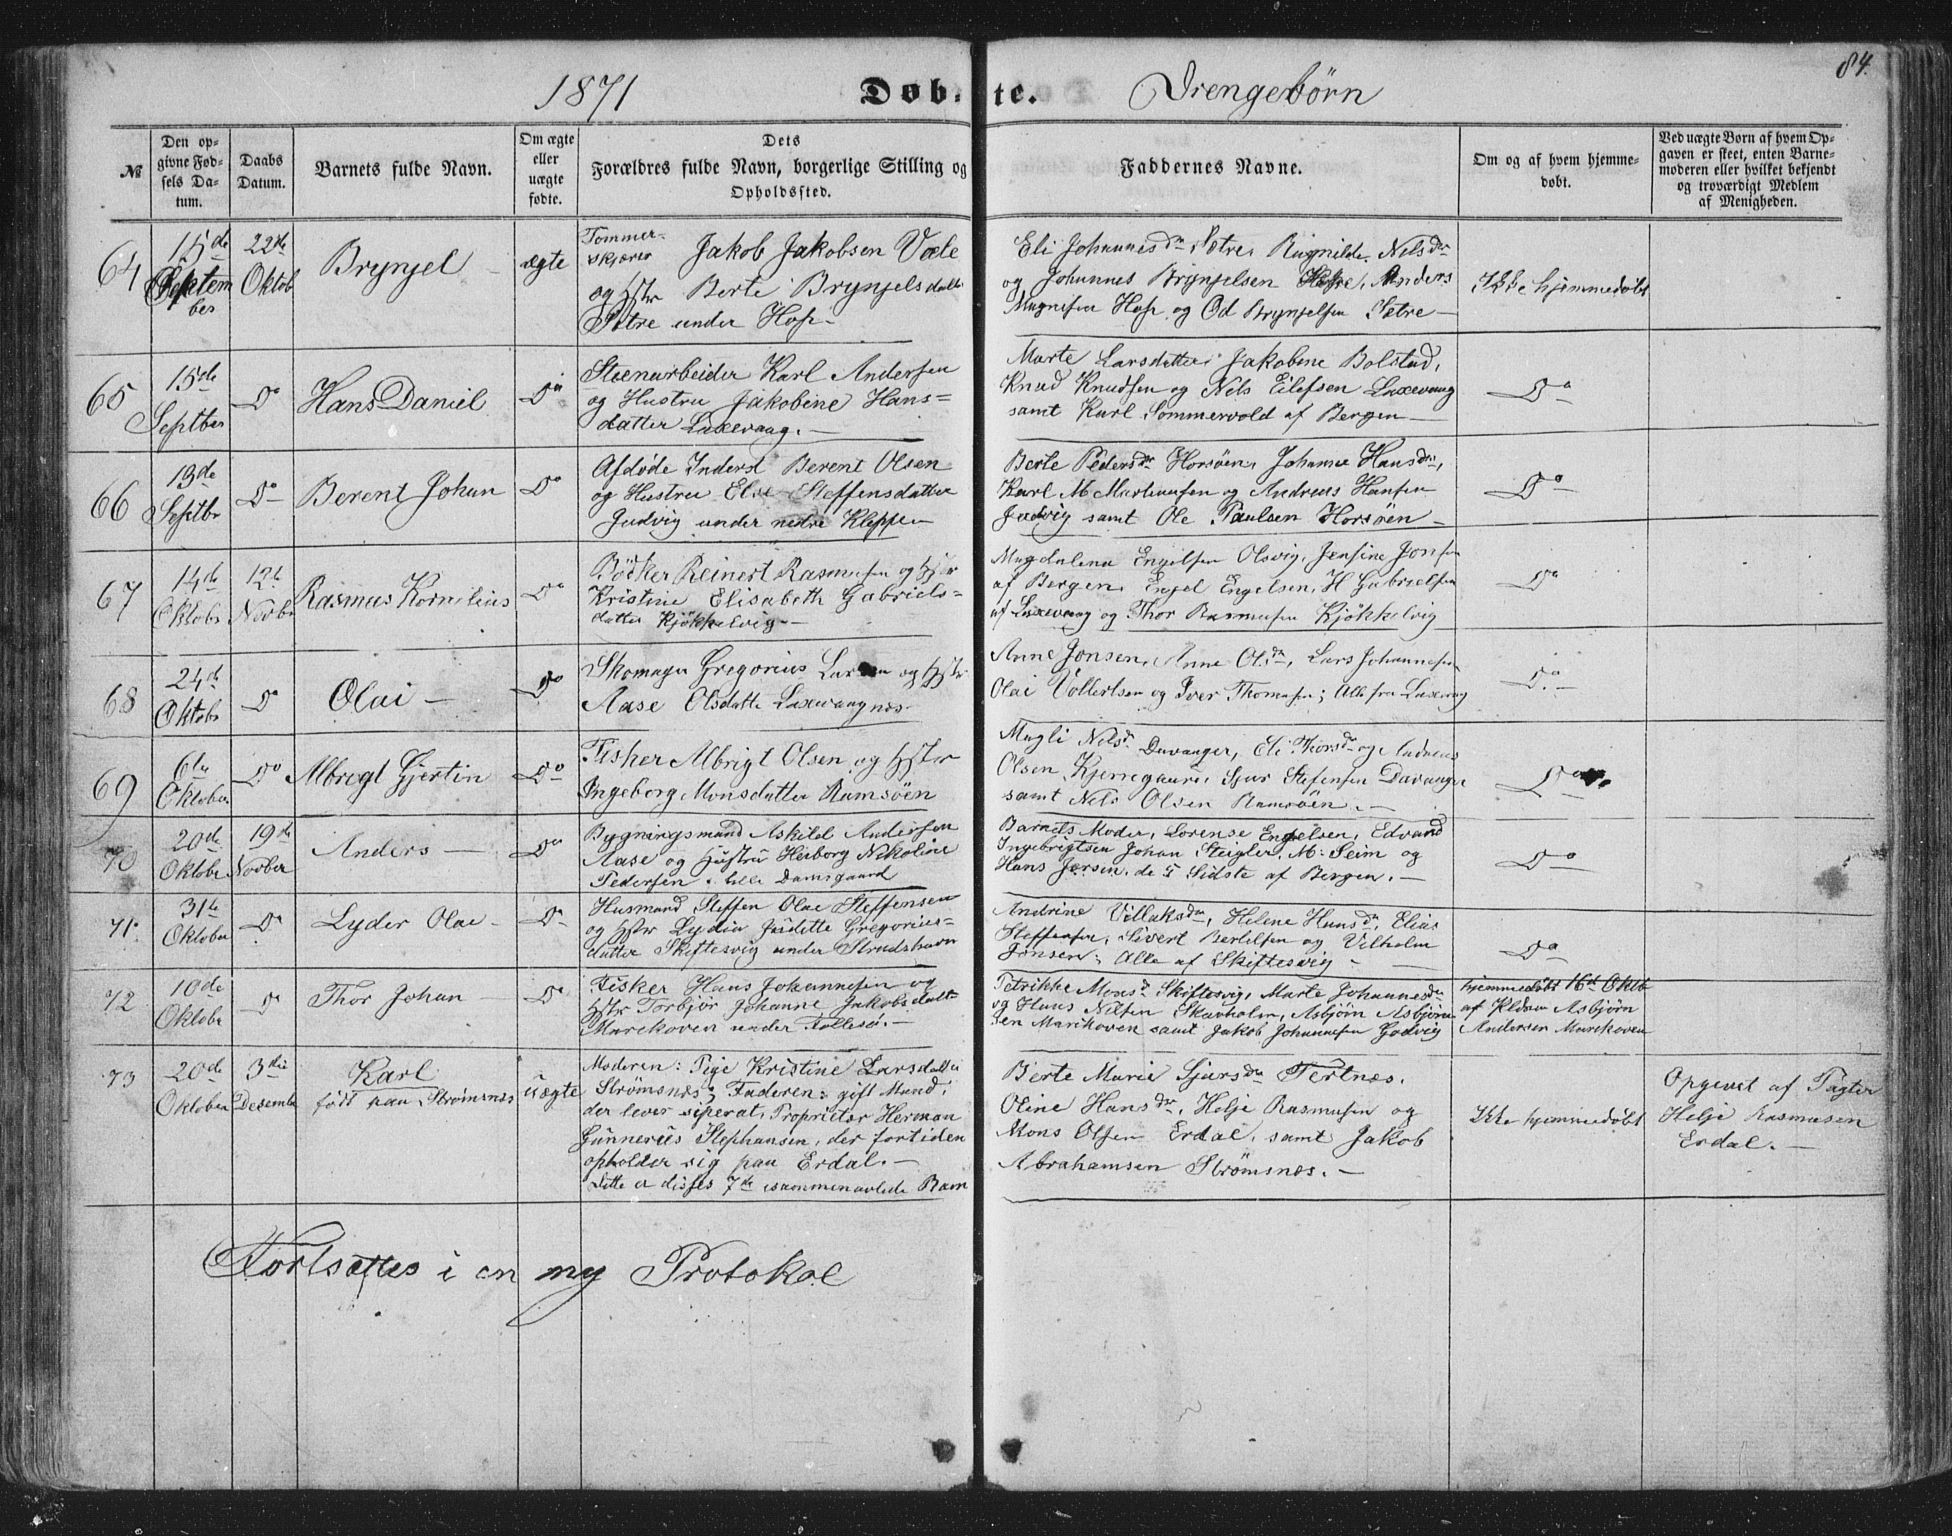 84.
1871 Døbte. Drengebørn
№
Den opgivne Fødsels Datum.
Daabs Datum.
Barnets fulde Navn.
Om ægte eller uægte fødte.
Dets Forældres fulde Navn, borgerlige Stilling og Opholdssted.
Faddernes Navne.
Om og af hvem hjemmedøbt.
Ved uægte Børn af hvem Opgaven er skeet, enten Barnemoderen eller hvilket bekjendt og troværdigt Medlem af Menigheden.
64
15de Septem
ber
22de
Oktob
Brynjel
ægte
Tommer-
skjærer Jakob Jakobsen Væle
og Hstr Berte Brynjelsdatt
Sætre under Hop
Eli Johannesdtr Sætre, Ragnilde Nelsdtr
og Johannes Brynjelsen Anders
Magnesen Hop og Od Brynjelsen Setre
Ikke hjemmedøbt
65
15de
Septber
Do
Hans Daniel
Do
Steenarbeider Karl Andersen
og Hustru Jakobine Hans=
datter Laxevaag.
Marte Larsdatter Jakobine Bolstad,
Knud Knudsen og Nels Eilefsen Laxevaag
samt Karl Sommervold af Bergen
Do
66
13de
Septbr
Do
Berent Johan
Do
Afdøde Inderst Berent Olsen
og Hustru Else Steffensdatter
Gudvig under nedre Kleppe
Berte Pedersdtr Horsøen, Johanne Hansdtr,
Karl M Marhausen og Andreas Hansen
Godvig samt Ole Paulsen Horsøen
Do
67
14de
Oktobr
12te
Novbr
Rasmus Kornelius
Do
Bødker Reinert Rasmusen og Hstr
Kristine Elisabeth Gabriels=
datter Kjøkkelvig
Magdalena Engelsen Olsvig, Jensine Jonsen
af Bergen, Engel Engelsen, H Gabrielsen
af Laxevaag og Thor Rasmusen Kjøkkelvig
Do
68
24de
Oktobr
Do
Olai
Do
Skomager Gregorius Larsen og Hstr
Aase Olsdatte Laxevaagnæs
Anne Jonsen, Anne Olsdtr, Lars Johannesen
Olai Vollertsen og Iver Thomasen; Alle fra Laxevaag
Do
69
6te
Oktober
Do
Albregt Gjertin
Do
Fisker Albrigt Olsen og Hstr
Ingeborg Monsdatter Ramsøen
Magli Nelsd Davanger, Eli Thorsdtr og Andreas
Olsen Kjernegaard Sjur Stefensen Davanger
samt Nels Olsen Ramsøen.
Do
70
20de
Oktobr
19de
Novber
Anders
Do
Bygningsmand Askild Andersen
Aase og Hustru Herborg Nikoline
Pedersen lille Damsgaard
Barnets Moder, Lorense Engelsen, Edvard
Ingebrigtsen Johan Steigler, M: Seim og
Hans Jersin, de 5 Sidste af Bergen.
Do
71
31te
Oktober
Do
Lyder Olae
Do
Husmand Steffen Olae Steffensen
og Hstr Lydia Judette Gregories=
datter Skiftesvig under Strudshavn
Andrine Villaksdtr, Helene Hansdtr, Elias
Steffensen, Sivert Bertelsen og Vilhelm
Jonsen; Alle af Skiftesvig
Do
72
10de
Oktobr
Do
Thor Johan
Do
Fisker Hans Johannesen og
Hstr Torbjør Johanne Jakobsdatt
Marikoven under Follesø.
Petrikke Monsd Skiftesvig, Marte Johannesdtr
og Hans Nilsen Skarholm, Asbjørn Asbjørn
sen Marikoven samt Jakob Johannesen Godvig
hjemmedøbt 16de Oktb
af Asbjørn
Andersen Marikoven
73
20de
Oktober
3die
Desembr
Karl
født paa Strømsnæs
uægte
Moderen: Pige Kristine Larsdatter
Strømsnæs; Faderen: gift Mand,
der lever seperat, Proprietær Herman
Gunnerius Stephansen, der fortiden
opholder sig paa Erdal.
Dette er disses 7de isammenavlede Barn
Berte Marie Sjursdtr Tertnæs.
Oline Hansdtr, Helje Rasmusen og
Mons Olsen Erdal, samt Jakob
Abrahamsen Strømsnæs.
Ikke hjemmedøbt
Opgivet af Pagter
Helje Rasmusen
Erdal.
Fortsættes i en ny Protokol